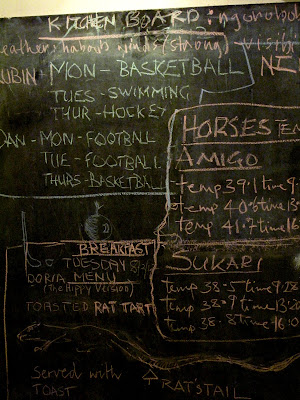 KITCHEN BOARD: ngorobob
weather: habous winds (strong) visib
RUBIN MON - BASKETBALL NI
TUES - SWIMMING
THUR - HOCKEY
DAN - MON - FOOTBALL
TUE - FOOTBALL
THURS - BASKETBALL
HORSES TEM
AMIGO
temp 39.1 time 9
temp 40.6 time 13
temp 41.7 time 16
BREAKFAST
TUESDAY
DORIA MENU
(the Hippy Version)
TOASTED RAT TART
Served with
TOAST
RATS TAIL
SUKARI
temp 38.5 time 9:28
temp 38.9 time 13:20
temp 38.8 time 16:0